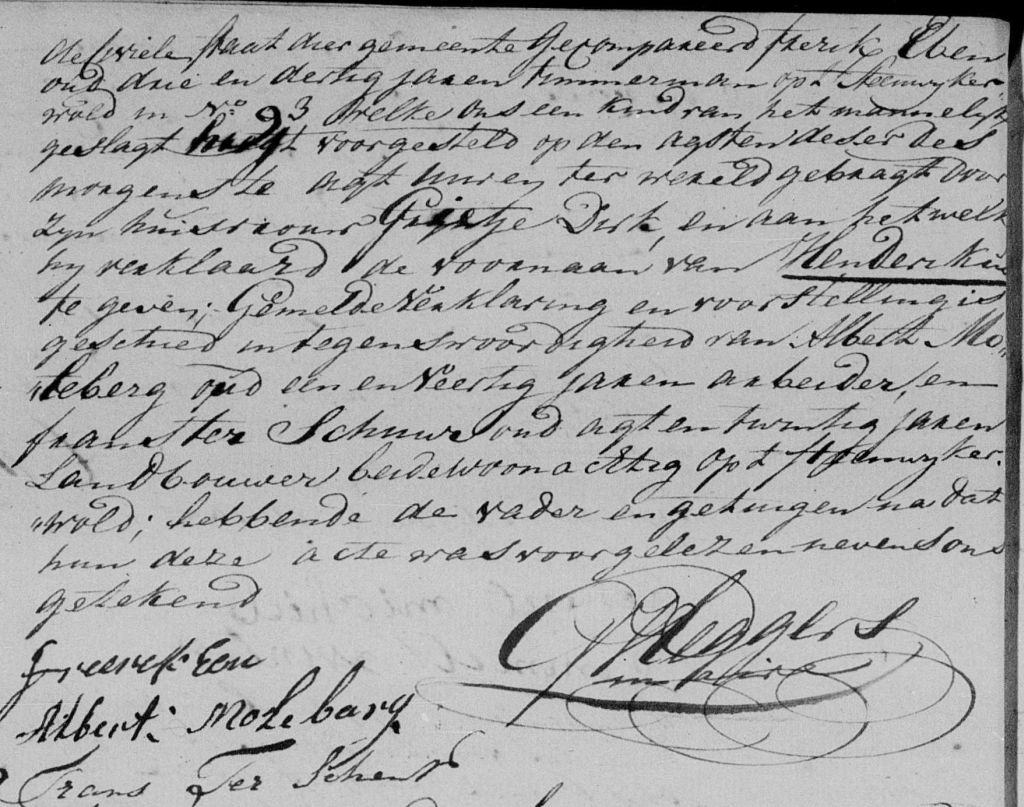 de Civiele staat dier gemeente Gecompareerd frerik Eben
oud drie en dertig jaren timmerman op t Steenwyker
wold in No 3 Welke ons een kind van het mannelyk
geslagt heeft voorgesteld op den agsten deser des
morgens te agt uuren ter wereld gebragt door
zyn huisvrouw Grietje Dirk, en aan het welk
hy verklaard de voornaan van Henderikus
te geven; Gemelde verklaring en voorstelling is
geschied in tegenswoordigheid van Albert Mo„
„leberg oud een en Veertig jaren arbeider, en
frans ter Schuur oud agt en twintig jaren
Landbouwer beide woonachtig op t Steenwyker„
„wold; hebbende de vader en getuigen na dat
hun deze acte was voorgelezen nevens ons
getekend
freerek Een
Heggers
maire
Albert: Molebarg
Frans Ter Scheur